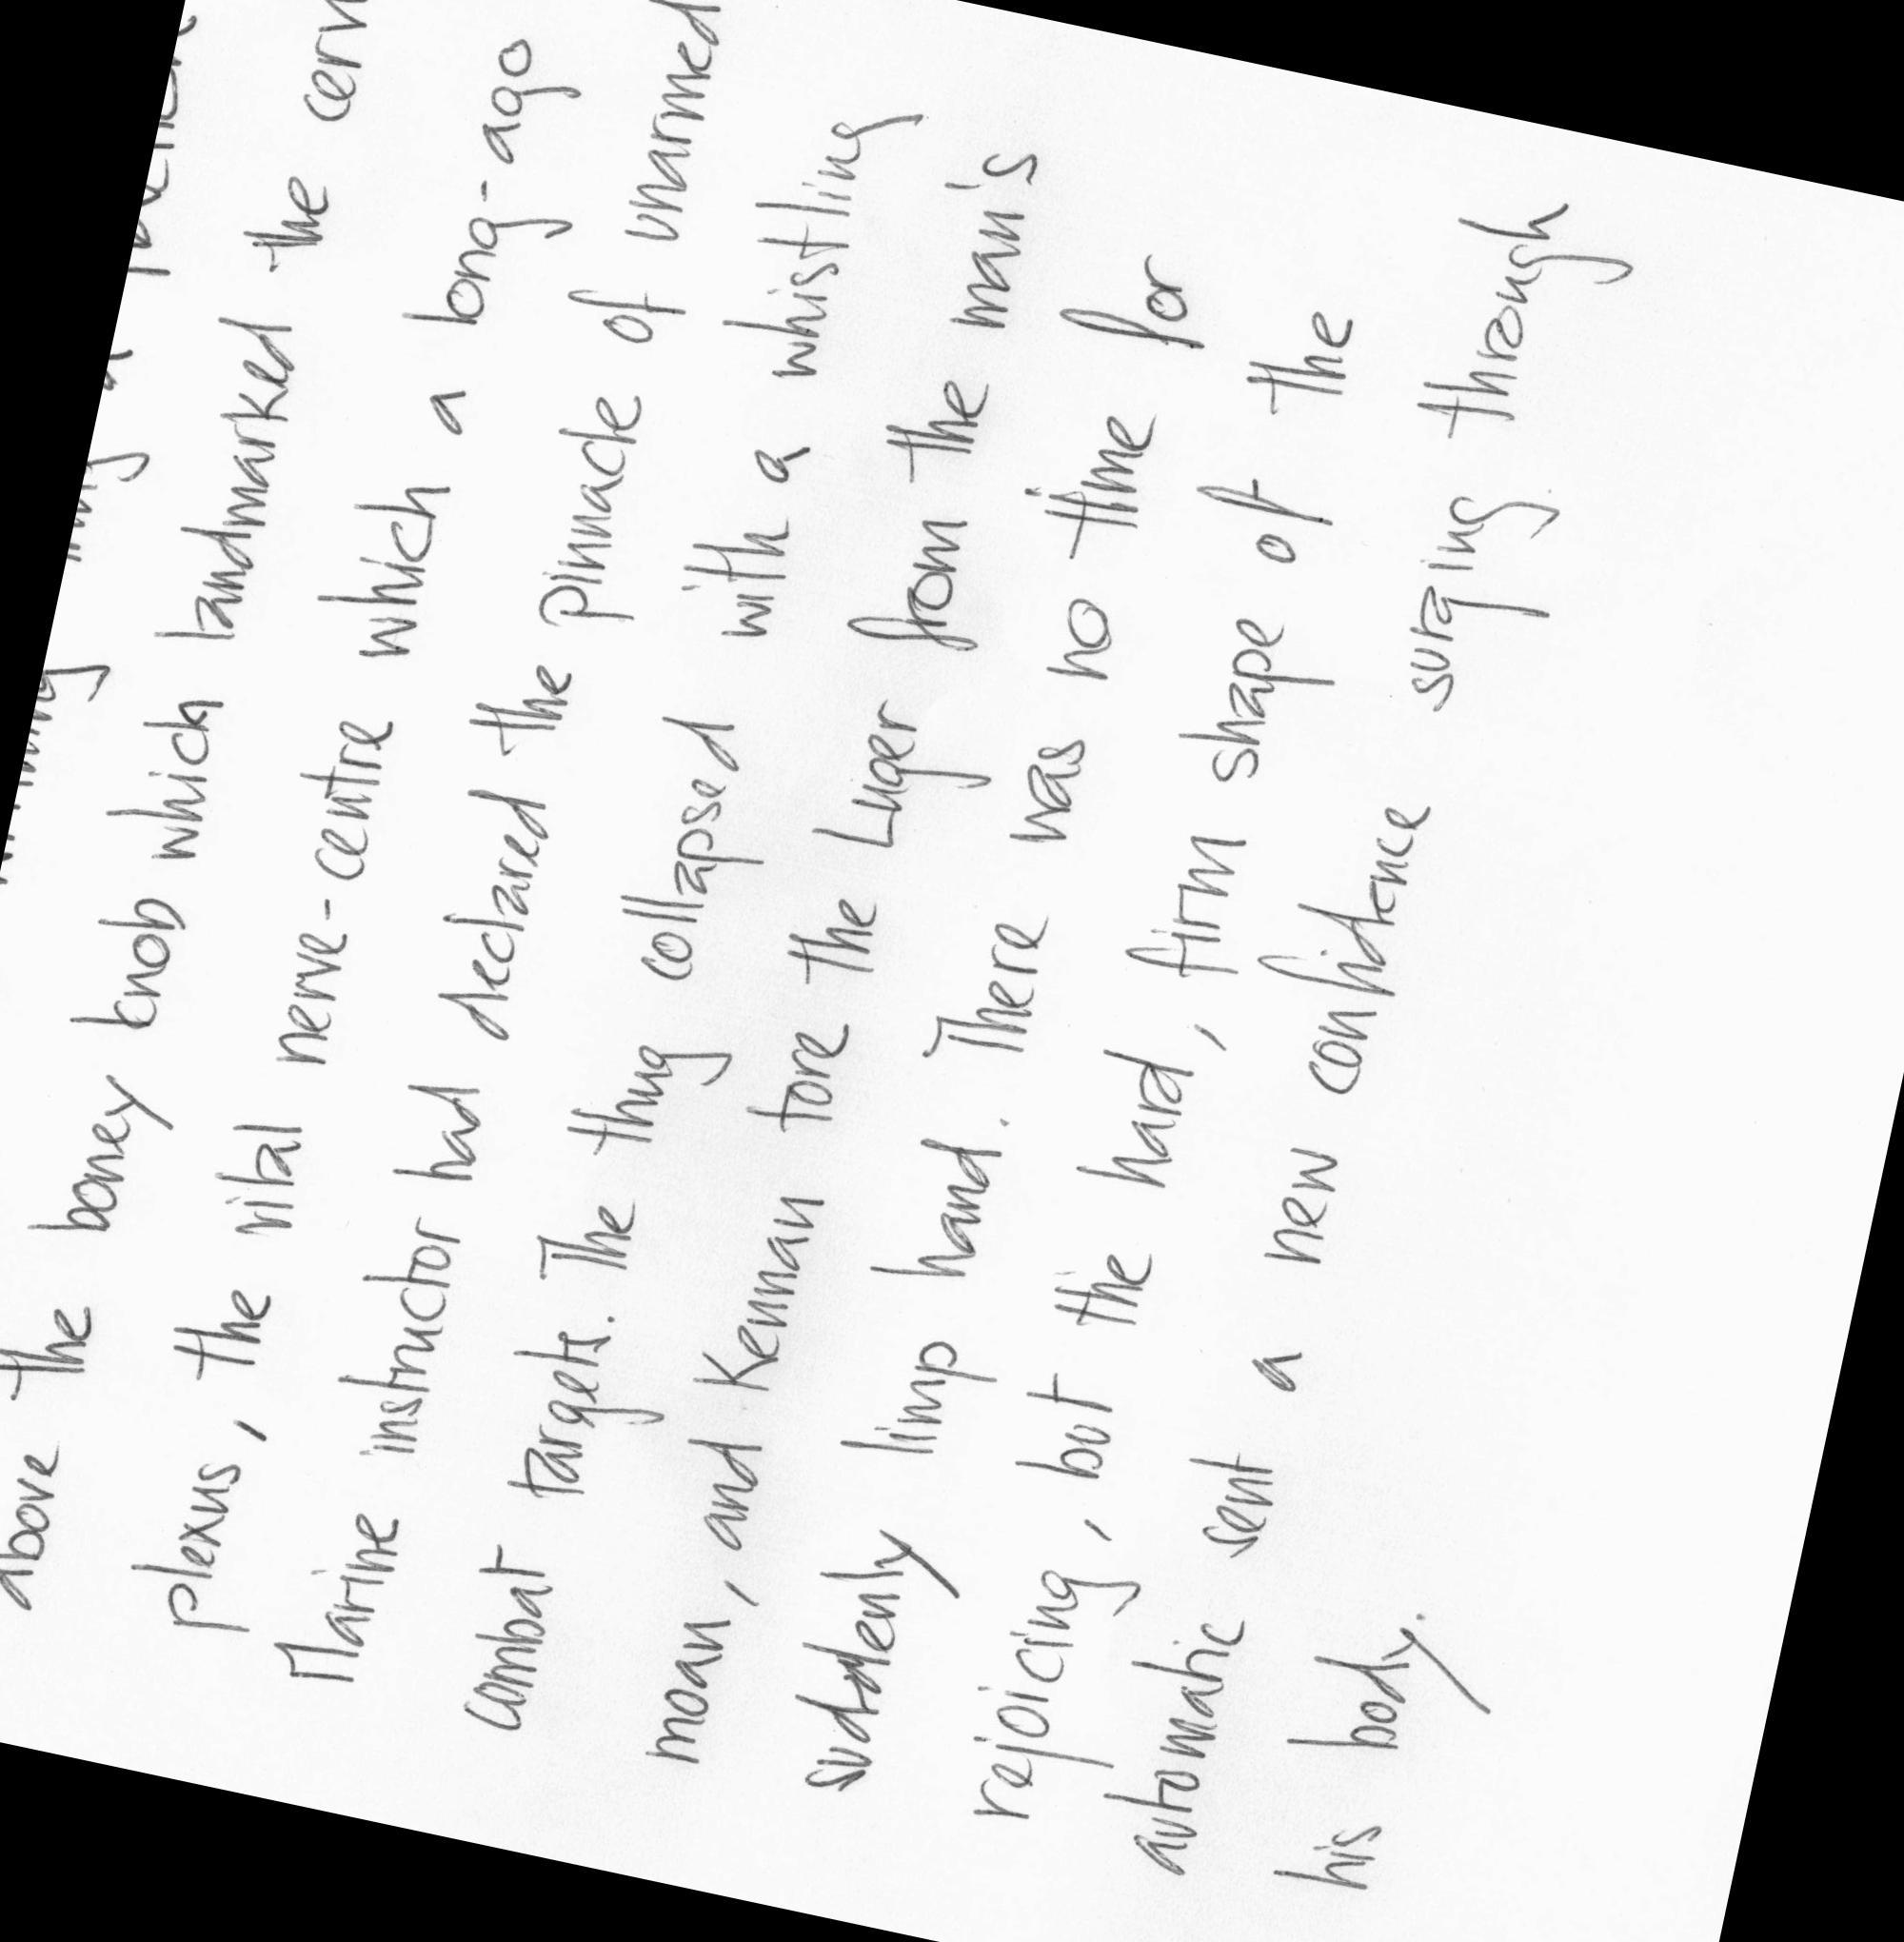 above the boney knob which landmarked the
plexus, the vital nerve-centre which a long-ago
Marine instructor had declared the pinnacle of unarmed
combat targets. The thug collapsed with a whistling
moan, and Kennan tore the Luger from the man's
suddenly limp hand. There was no time for
rejoicing, but the hard, firm shape of the
automatic sent a new confidence surging through
his body.